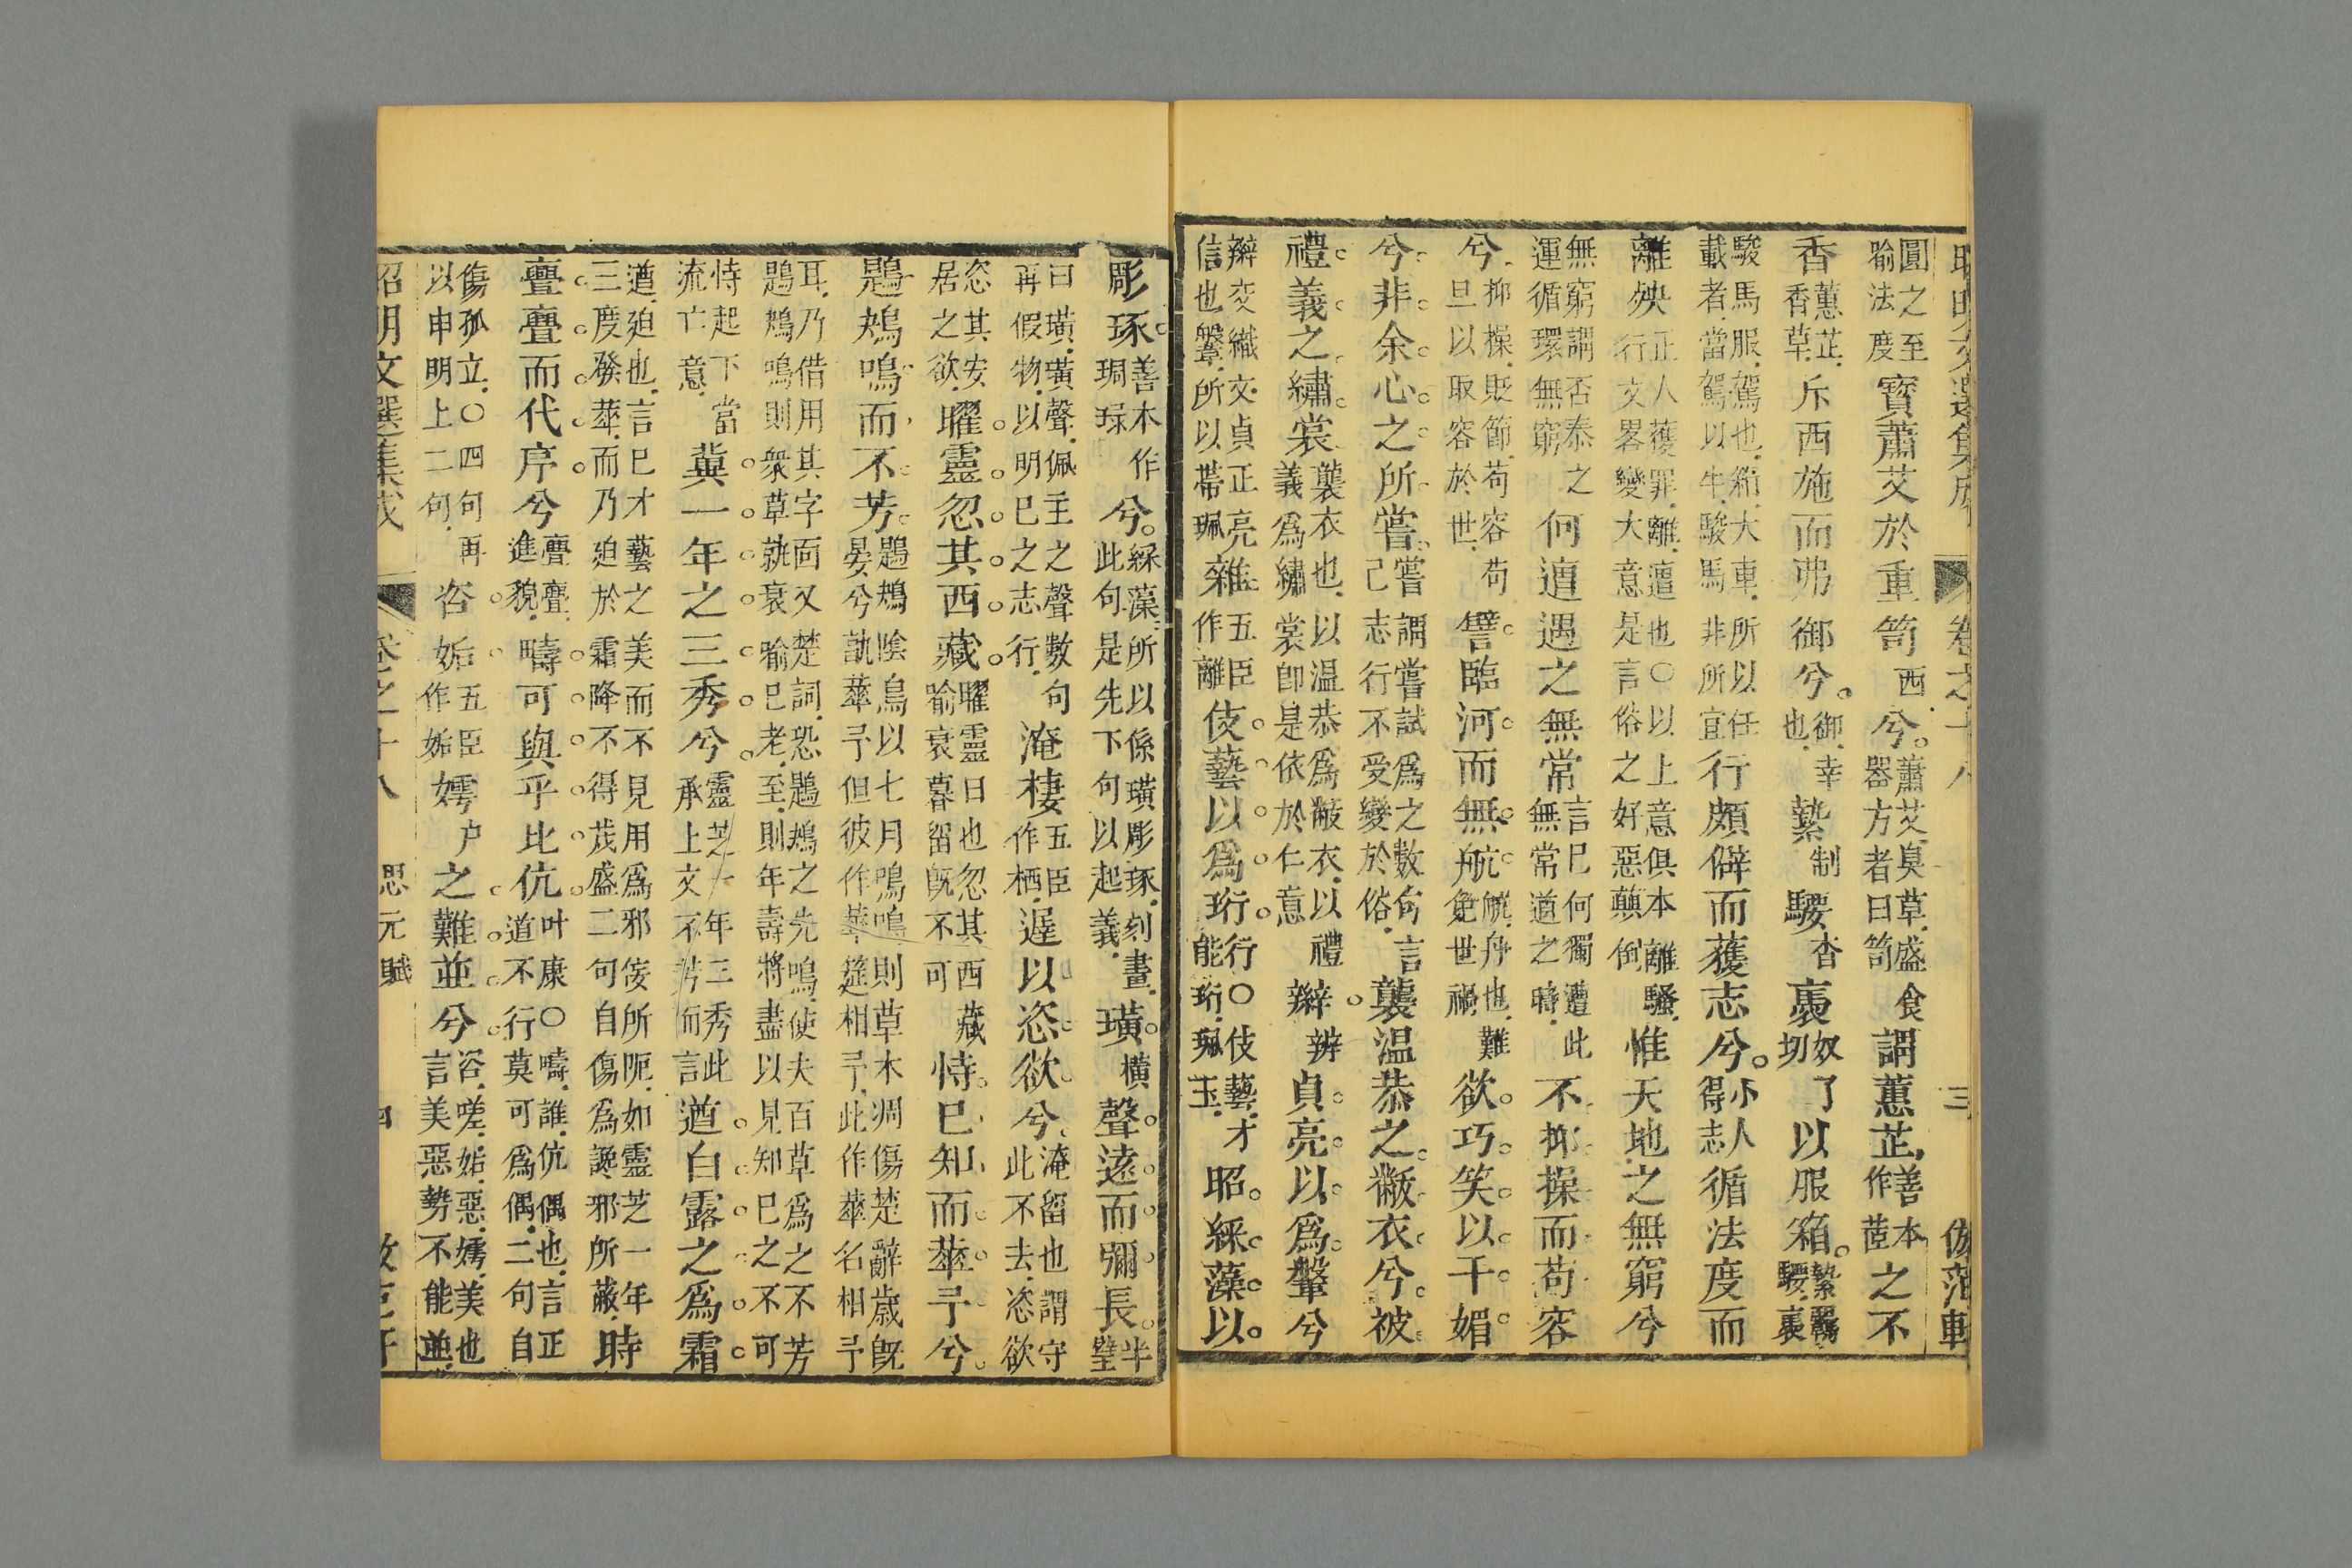 圓之至喻法度寳蕭艾於重笥西兮蕭艾臭草盛食器方者曰笥謂蕙芷善本作茝之不
香蕙芷香草斥西施而弗御兮御幸也縶制騕杳褭奴了切以服箱縶羈騕褭
駿馬服駕也箱大車所以任載者當駕以牛駿馬非所宜行頗僻而獲志兮小人得志循法度而
離殃正人獲罪離遭也○以上意俱本離騷行文畧變大意是言俗之好惡顛倒惟天地之無窮兮
無窮謂否泰之運循環無窮何遭遇之無常言巳何獨遭此無常道之時不抑操而苟容
兮抑操貶節苟容苟且以取容於世譬臨河而無航航舟也難免世禍欲巧笑以干媚
兮非余心之所嘗嘗謂嘗試爲之數句言己志行不受變於俗襲温恭之黻衣兮被
禮義之繡裳襲衣也以温恭爲黻衣以禮義爲繡裳卽是依於仁意辮辨貞亮以爲鞶兮
辮交織交貞正亮信也鞶所以帶珮雜五臣作離伎藝以爲珩行○伎藝才能珩珮玉昭綵藻以
彫琢善本作琱琭兮綵藻所以係璜彫琢刻畫此句是先下句以起義璜橫聲遠而彌長半璧
曰璜璜聲佩玉之聲數句再假物以明巳之志行淹棲五臣作栖遲以恣欲兮淹留也謂守此不去恣欲
恣其安居之欲曜靈忽其西藏曜靈日也忽其西藏喻衰暮留旣不可恃巳知而華予兮
鶗鴂鳴而不芳鶗鴂陰鳥以七月鳴鳴則草木凋傷楚辭歲旣晏兮孰華予但彼作華筵相予此作華名相予
耳乃借用其字面又楚詞恐鶗鴂之先鳴使夫百草爲之不芳鶗鴂鳴則衆草就衰喻巳老至則年壽將盡以見知巳之不可
恃起下當流亡意冀一年之三秀兮靈芝一年三秀此承上文不芳而言遒白露之爲霜
遒廹也言巳才藝之美而不見用爲邪佞所阨如靈芝一年三度發華而乃廹於霜降不得茂盛二句自傷爲讒邪所蔽時
亹亹而代序兮亹亹進貌疇可與乎比伉叶康○疇誰伉偶也言正道不行莫可爲偶二句自
傷孤立○四句再以申明上二句咨妬五臣作姤嫮户之難並兮咨嗟妬惡嫮美也言美惡勢不能並
昭明文選集成 卷之十八 思元賦 四